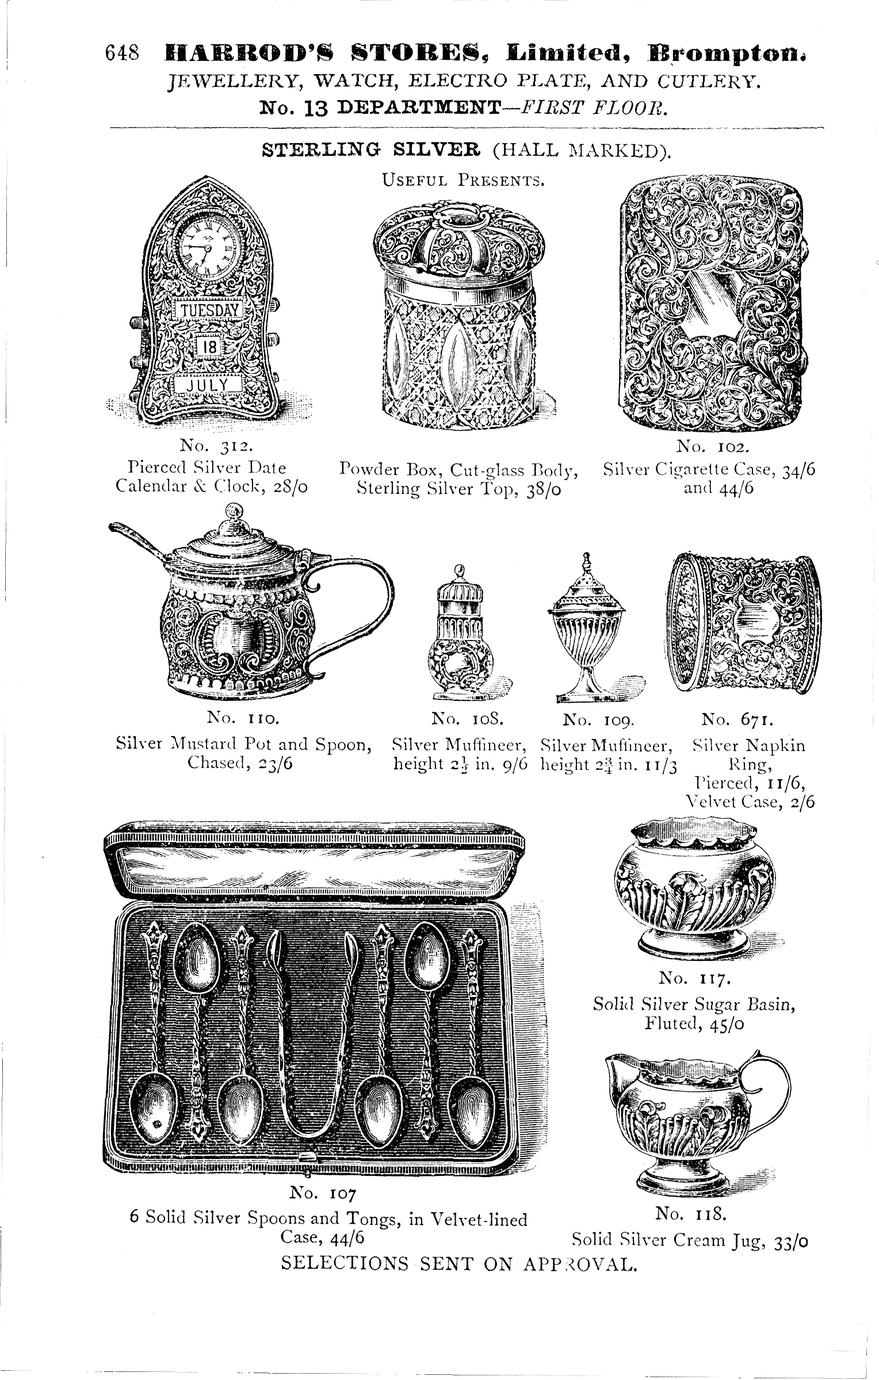 648 HARROD'S STORES, Limited, Brompton.
JEWELLERY, WATCH, ELECTRO PLATE, AND CUTLERY.
No. 13 DEPARTMENT—FIRST FLOOR.
STERLING SILVER (HALL MARKED).
USEFUL PRESENTS.
TUESDAY
18
JULY
No. 312.
Pierced Silver Date
Calendar & Clock, 28/0
Powder Box, Cut-glass Body,
Sterling Silver Top, 38/0
No. 102.
Silver Cigarette Case, 34/6
and 44/6
No. 110.
Silver Mustard Pot and Spoon,
Chased, 23/6
No. 108.
Silver Muffineer,
height 2½ in. 9/6
No. 109.
Silver Muffineer,
height 2¾ in. 11/3
No. 671.
Silver Napkin
Ring,
Pierced, 11/6,
Velvet Case, 2/6
No. 107
6 Solid Silver Spoons and Tongs, in Velvet-lined
Case, 44/6
No. 117.
Solid Silver Sugar Basin,
Fluted, 45/0
No. 118.
Solid Silver Cream Jug, 33/0
SELECTIONS SENT ON APPROVAL.